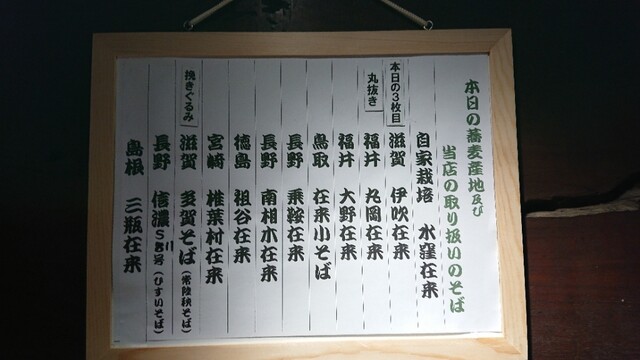 本日の蕎麦産地及び
当店の取り扱いのそば
自家栽培 水窪在来
本日の3枚目
滋賀 伊吹在来
丸抜き
福井 丸岡在来
福井 大野在来
鳥取 在来小そば
長野 乗鞍在来
長野 南相木在来
徳島 祖谷在来
宮崎 椎葉村在来
挽きぐるみ
滋賀 多賀そば(常陸秋そば)
長野 信濃S8号(ひすいそば)
島根 三瓶在来